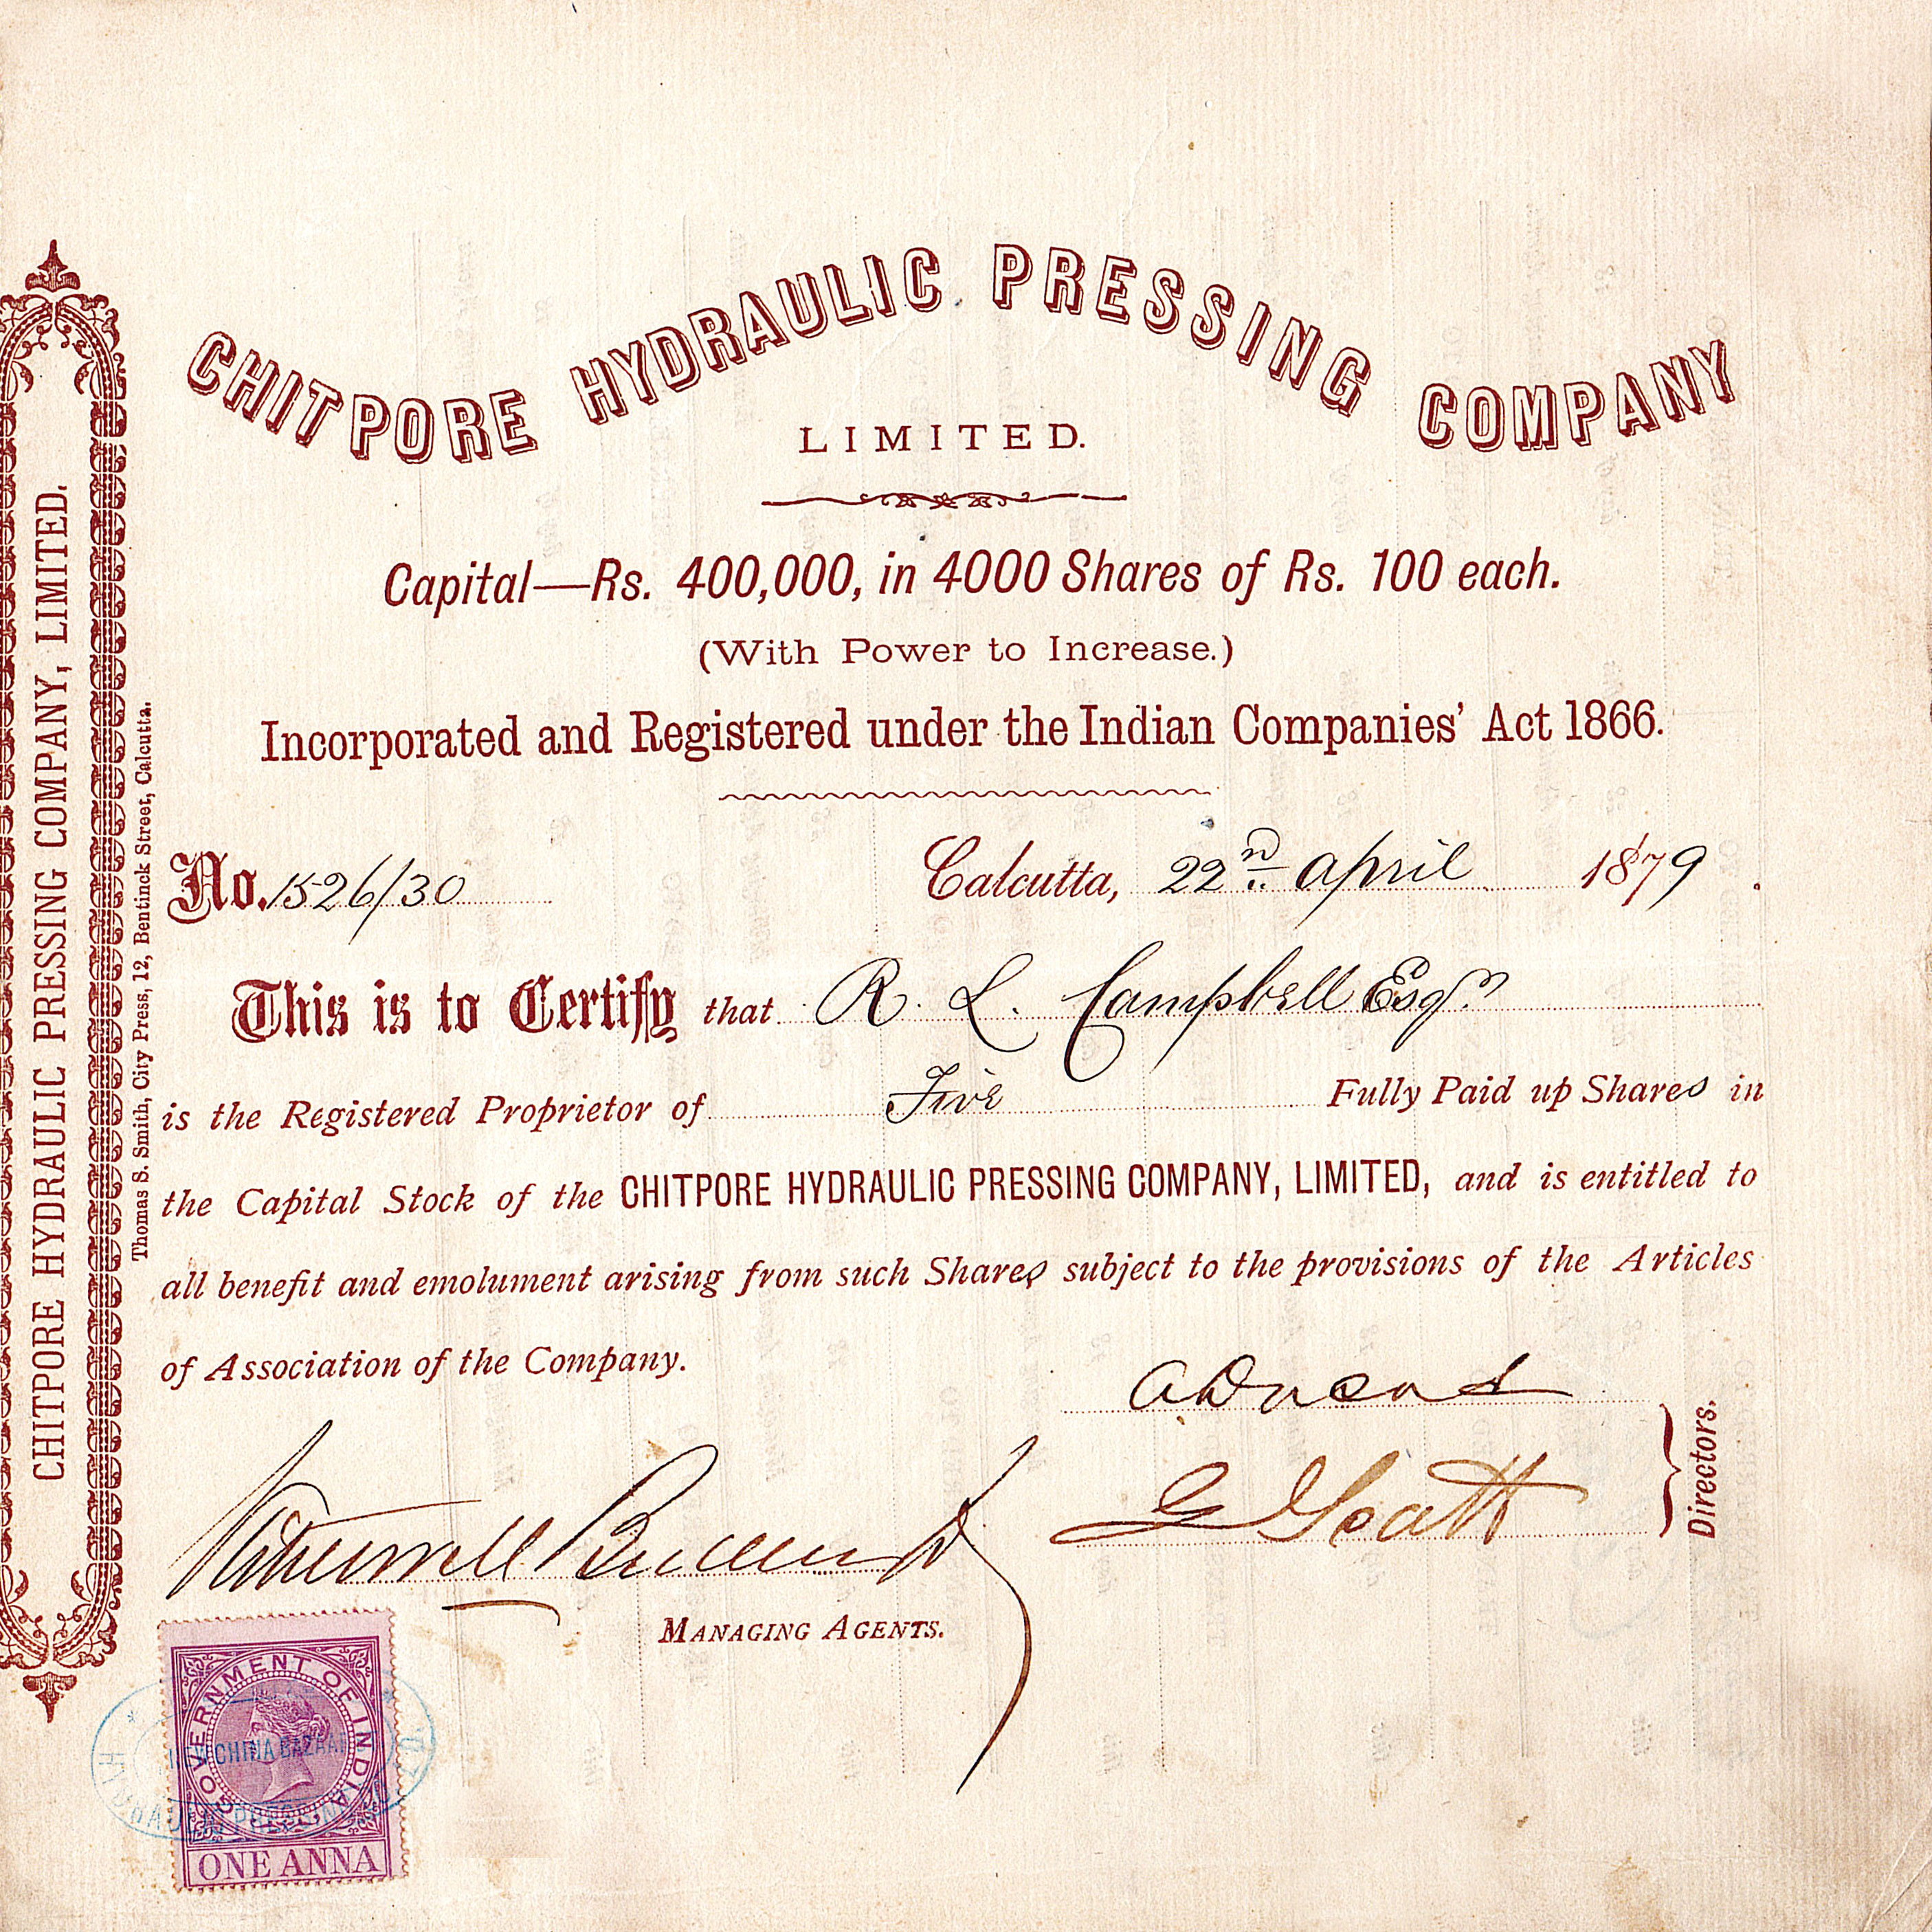 CHITPORE HYDRAULIC PRESSING COMPANY
LIMITED.
Capital—Rs. 400,000, in 4000 Shares of Rs. 100 each.
(With Power to Increase.)
Incorporated and Registered under the Indian Companies' Act 1866.
No. 1526/30
Calcutta, 22nd April 1879.
This is to Certify that R. L. Campbell Esqr
is the Registered Proprietor of Five Fully Paid up Shares in
the Capital Stock of the CHITPORE HYDRAULIC PRESSING COMPANY, LIMITED, and is entitled to
all benefit and emolument arising from such Shares subject to the provisions of the Articles
of Association of the Company.
G Scott
Directors.
MANAGING AGENTS.
GOVERNMENT OF INDIA
NEW CHINA BAZAAR
ONE ANNA
CHITPORE HYDRAULIC PRESSING COMPANY, LIMITED.
Thomas S. Smith, City Press, 12, Bentinck Street, Calcutta.